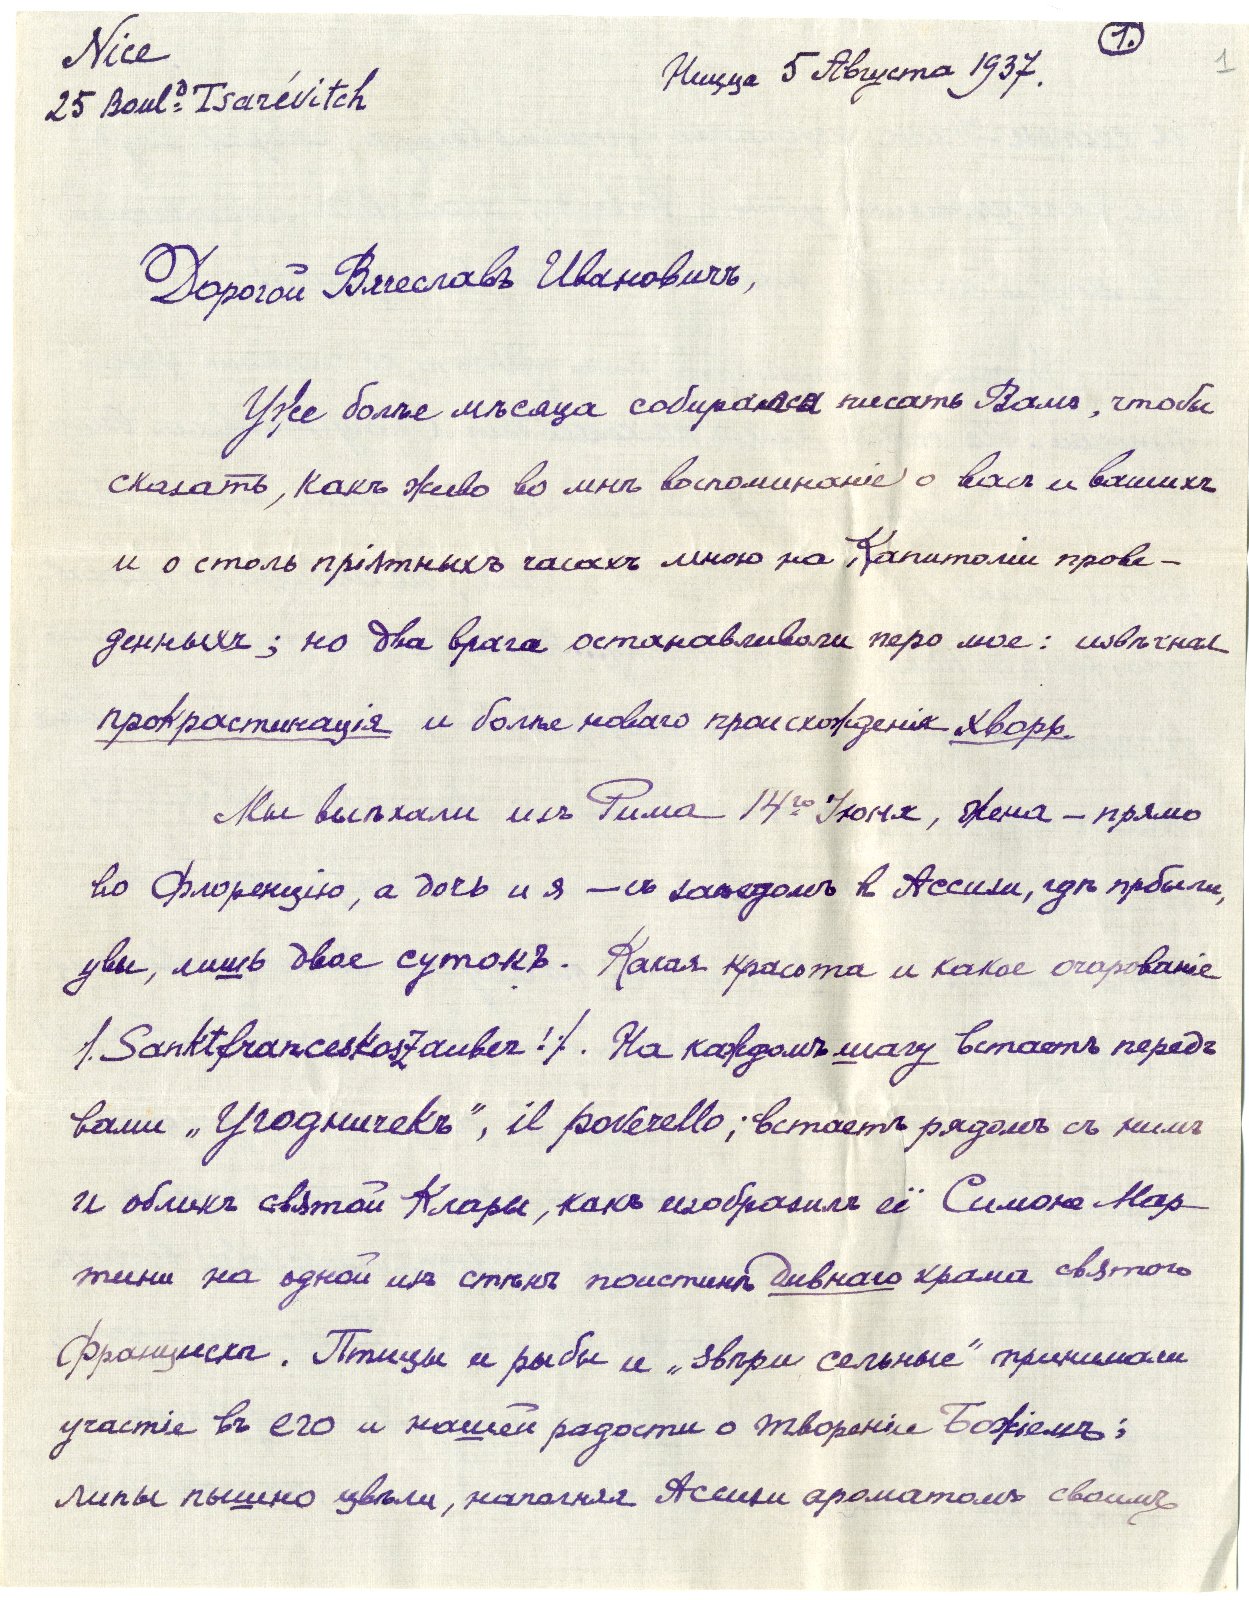 1.
1
Nice
25 Boul.d Tsarévitch
Ницца 5 Августа 1937.
Дорогой Вячеславъ Ивановичъ,
Уже болѣе мѣсяца собирался писать Вамъ, чтобы
сказать, какъ живо во мнѣ воспоминаніе о васъ и вашихъ
и о столь пріятныхъ часахъ мною на Капитоліи прове-
денныхъ; но два врага останавливали перо мое: извѣчная
прокрастинація и болѣе новаго происхожденія хворь.
Мы выѣхали изъ Рима 14го Іюня, жена – прямо
во Флоренцію, а дочь и я – съ заѣздомъ в Ассизи, гдѣ прбыли,
увы, лишь двое сутокъ. Какая красота и какое очарованіе
/. Sanktfranceskoszauber!/. На каждомъ шагу встаетъ передъ
вами „Угодничекъ", il poverello; встаетъ рядомъ съ нимъ
и обликъ святой Клары, какъ изобразилъ её Симоне Мар-
тини на одной изъ стѣнъ поистинѣ дивнаго храма святого
Франциска. Птицы и рыбы и „звѣри сельные" принимали
участіе въ его и нашей радости о твореніи Божіемъ:
липы пышно цвѣли, наполняя Ассизи ароматомъ своимъ